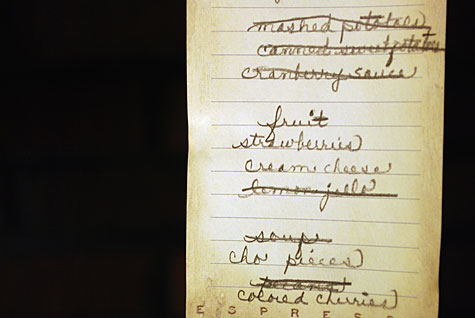 mashed potatoes
canned sweet potatoes
cranberry sauce
fruit
strawberries
cream cheese
lemon jello
soup
choc pieces
pecans
colored cherries
E S P R E S S